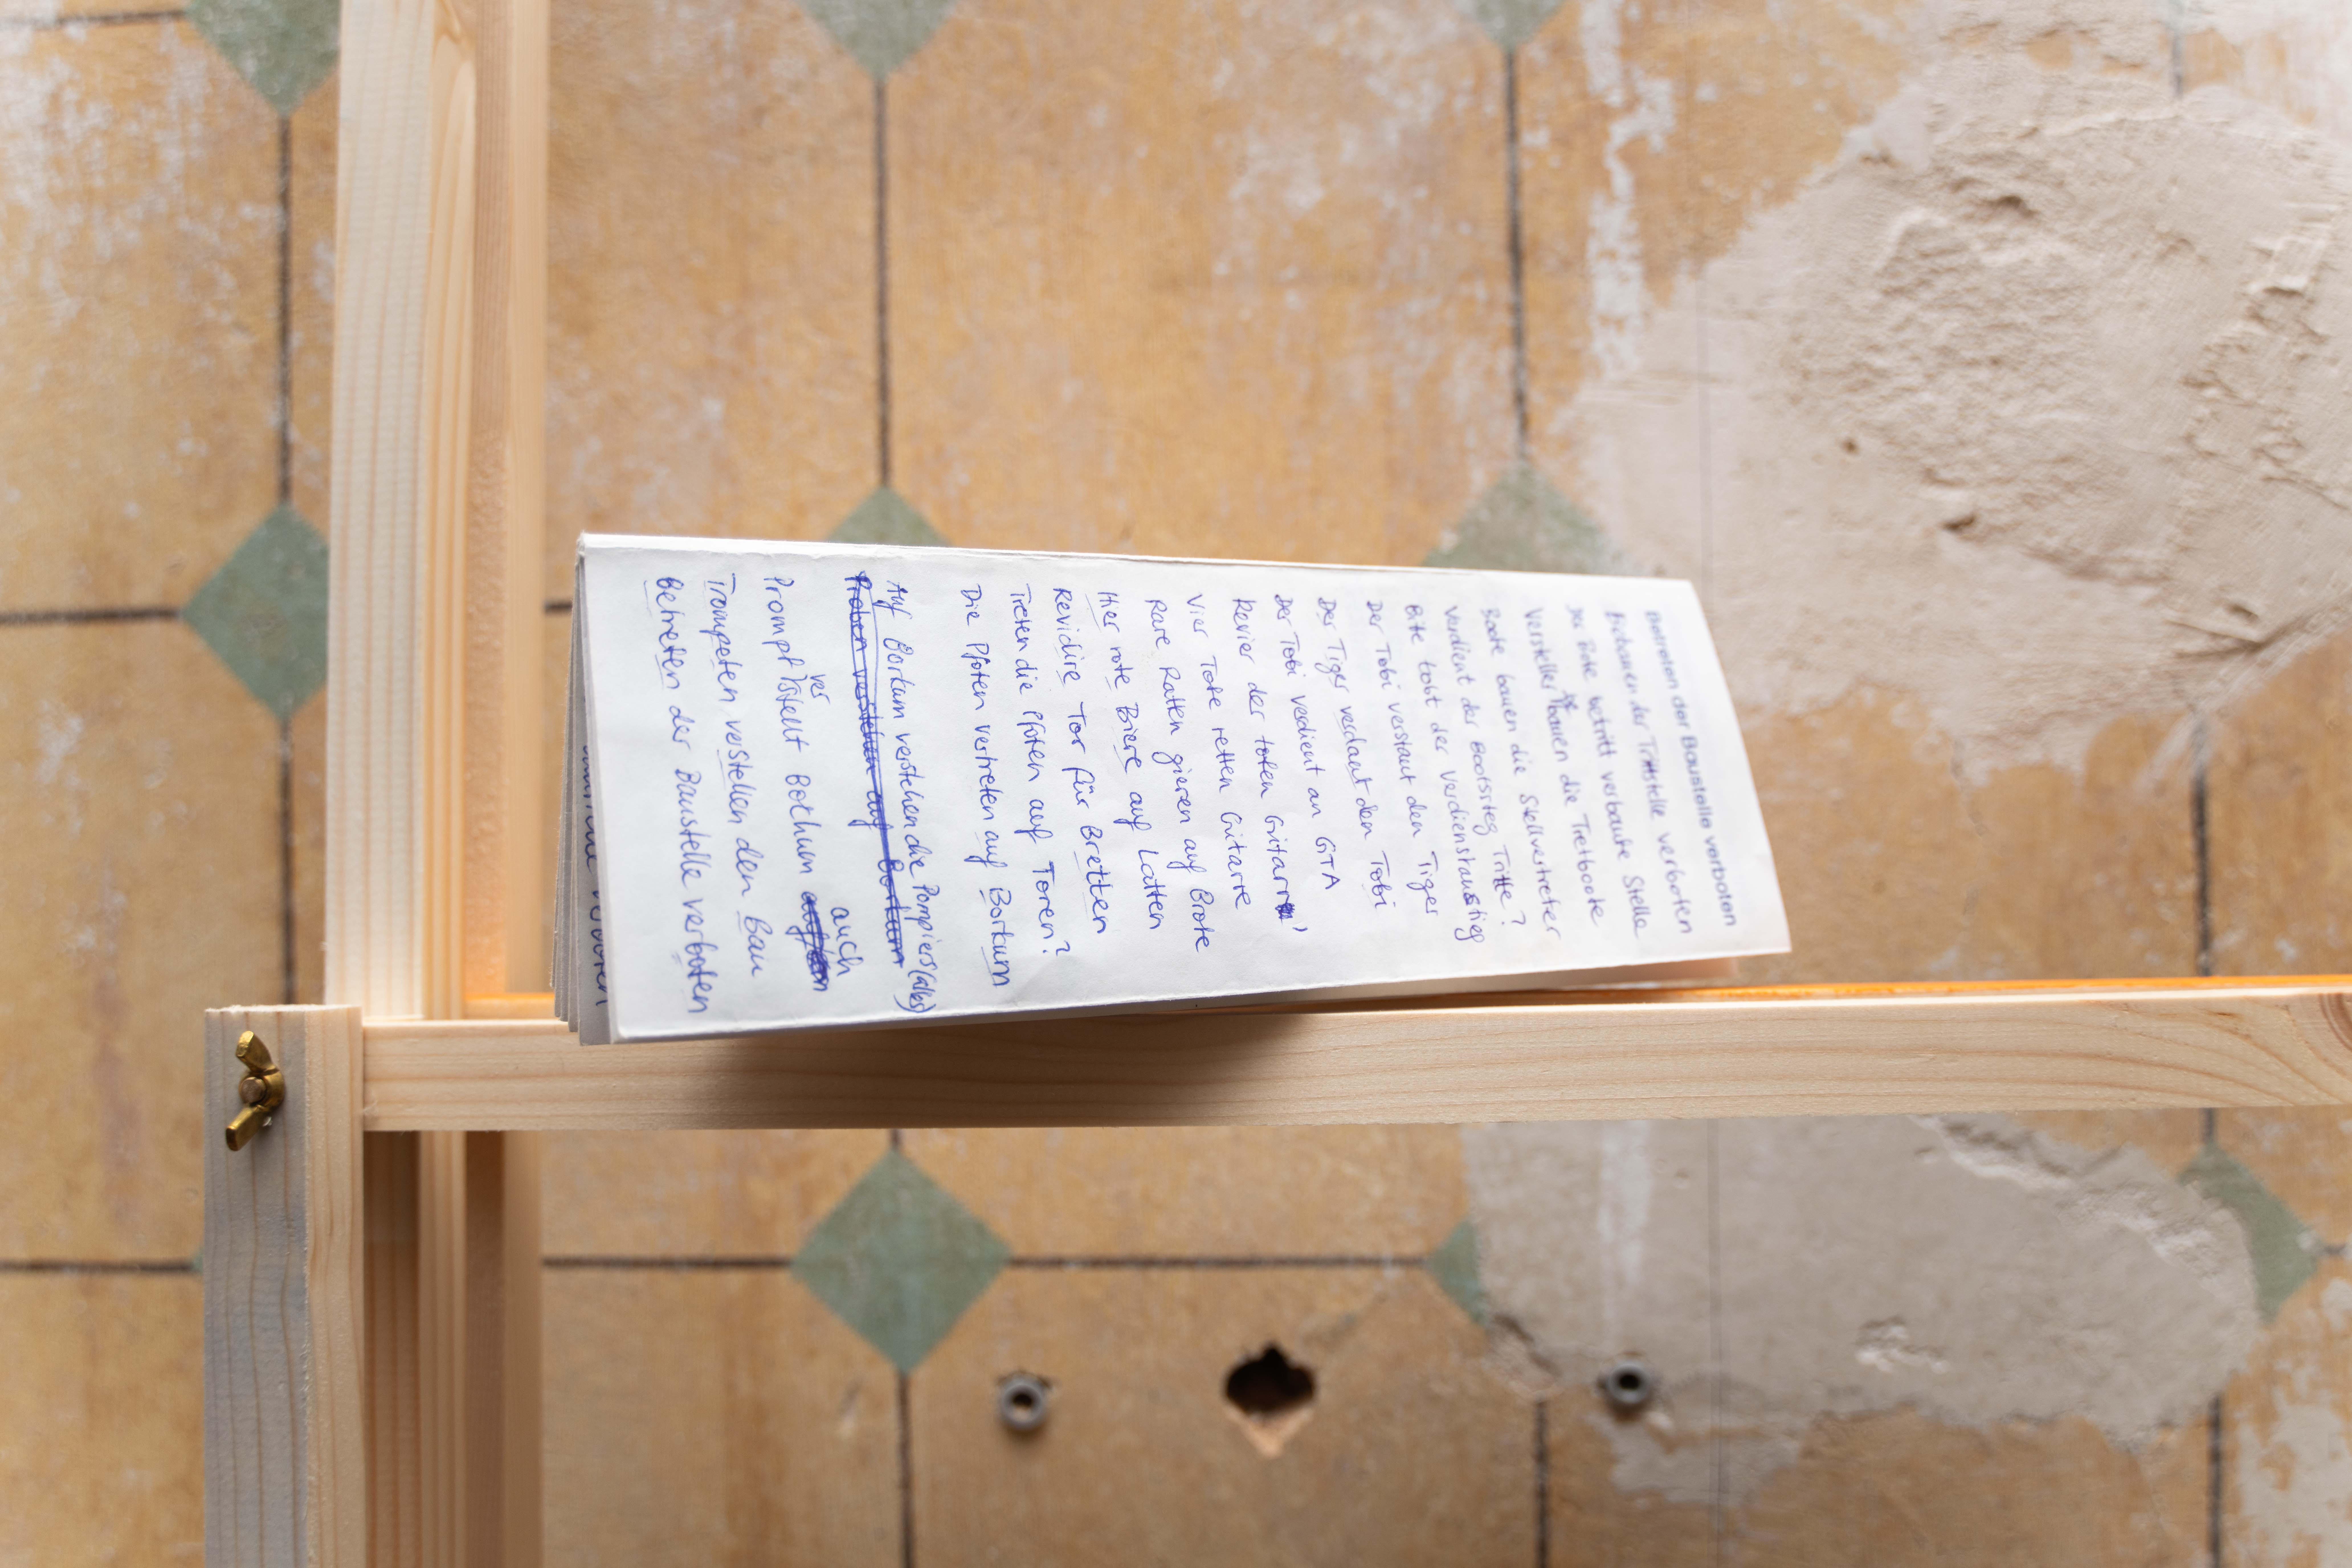 Betreten der Baustelle verboten
Erbauen der Trittstelle verboten
Der Bote betritt verbaute Stelle
Versteller bauen die Tretboote
Boote bauen die Stellvertreter
Verdient der Bootssteg Tritte?
tobt der Verdienstaustieg
Der Tobi verstaut den Tiger
Der Tiger verdaut den Tobi
Der Tobi verdient an GTA
Revier der toten Gitarre!
Vier Tote retten Gitarre
Rare Ratten gieren auf Brote
Hier rote Biere auf Latten
Revidire Tor für Bretten
Treten die Pfoten auf Toren?
Die Pfoten vertreten auf Borkum
Auf Borkum verstehen die Pompiers (alles)
Proben verstehen auf Borkum
Prompt verstellt Bochum auch
Trompeten verstellen den Bau
Betreten der Baustelle verboten